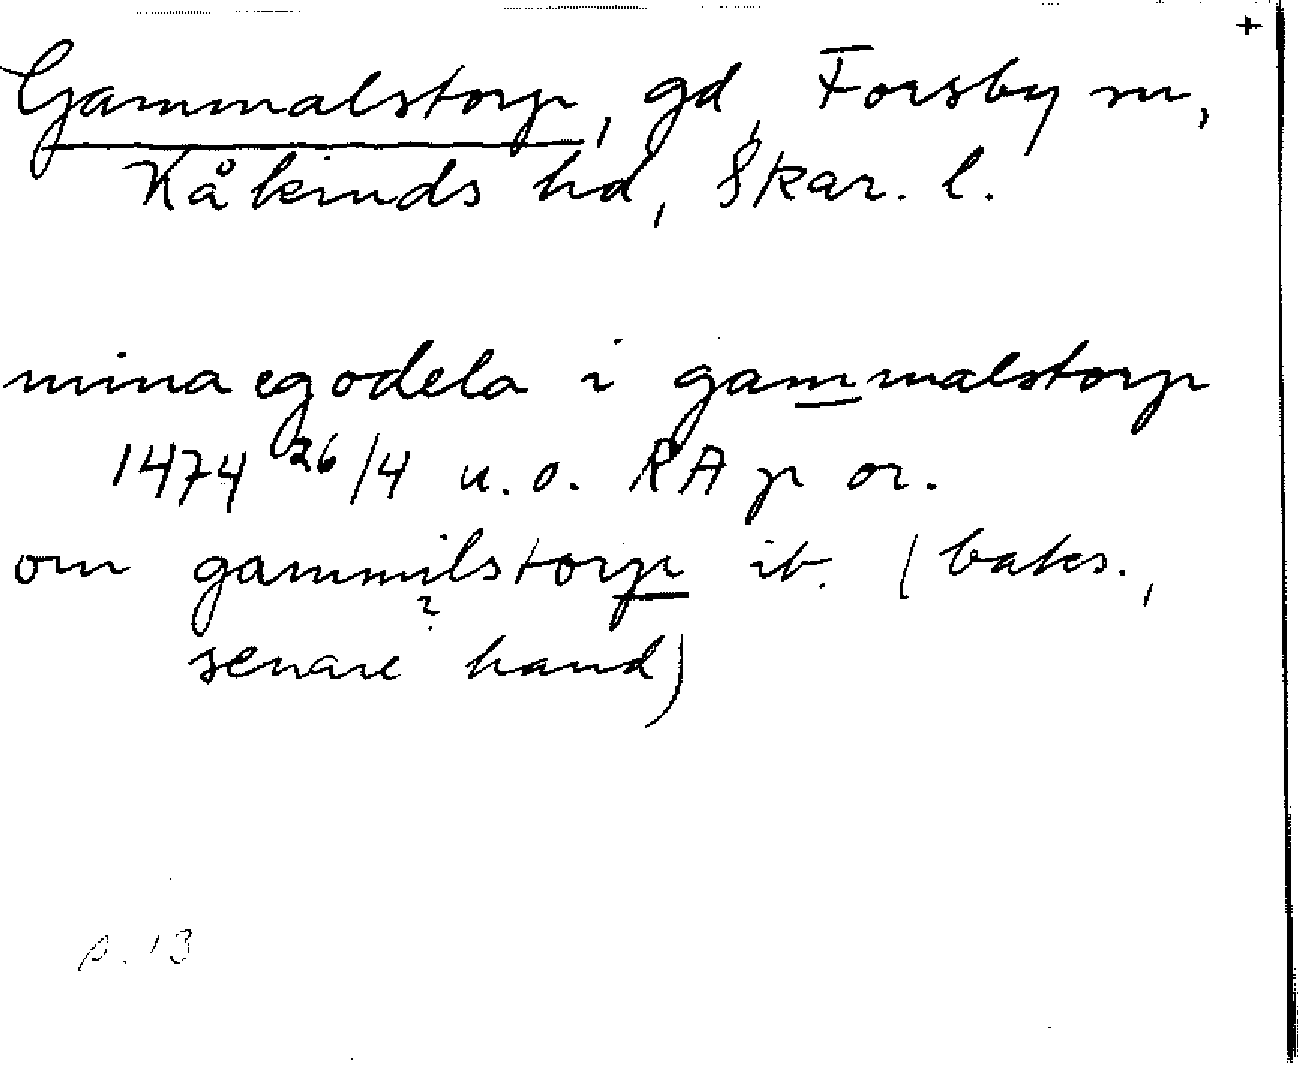 +
Gammalstorp, gd, Forsby sn,
Kåkinds hd, Skar. l.
mina egodela i gammalstorp
1474 26/4 u.o. RA p or.
om gammilstorp ib. (baks.,
?
senare hand)
s. 13